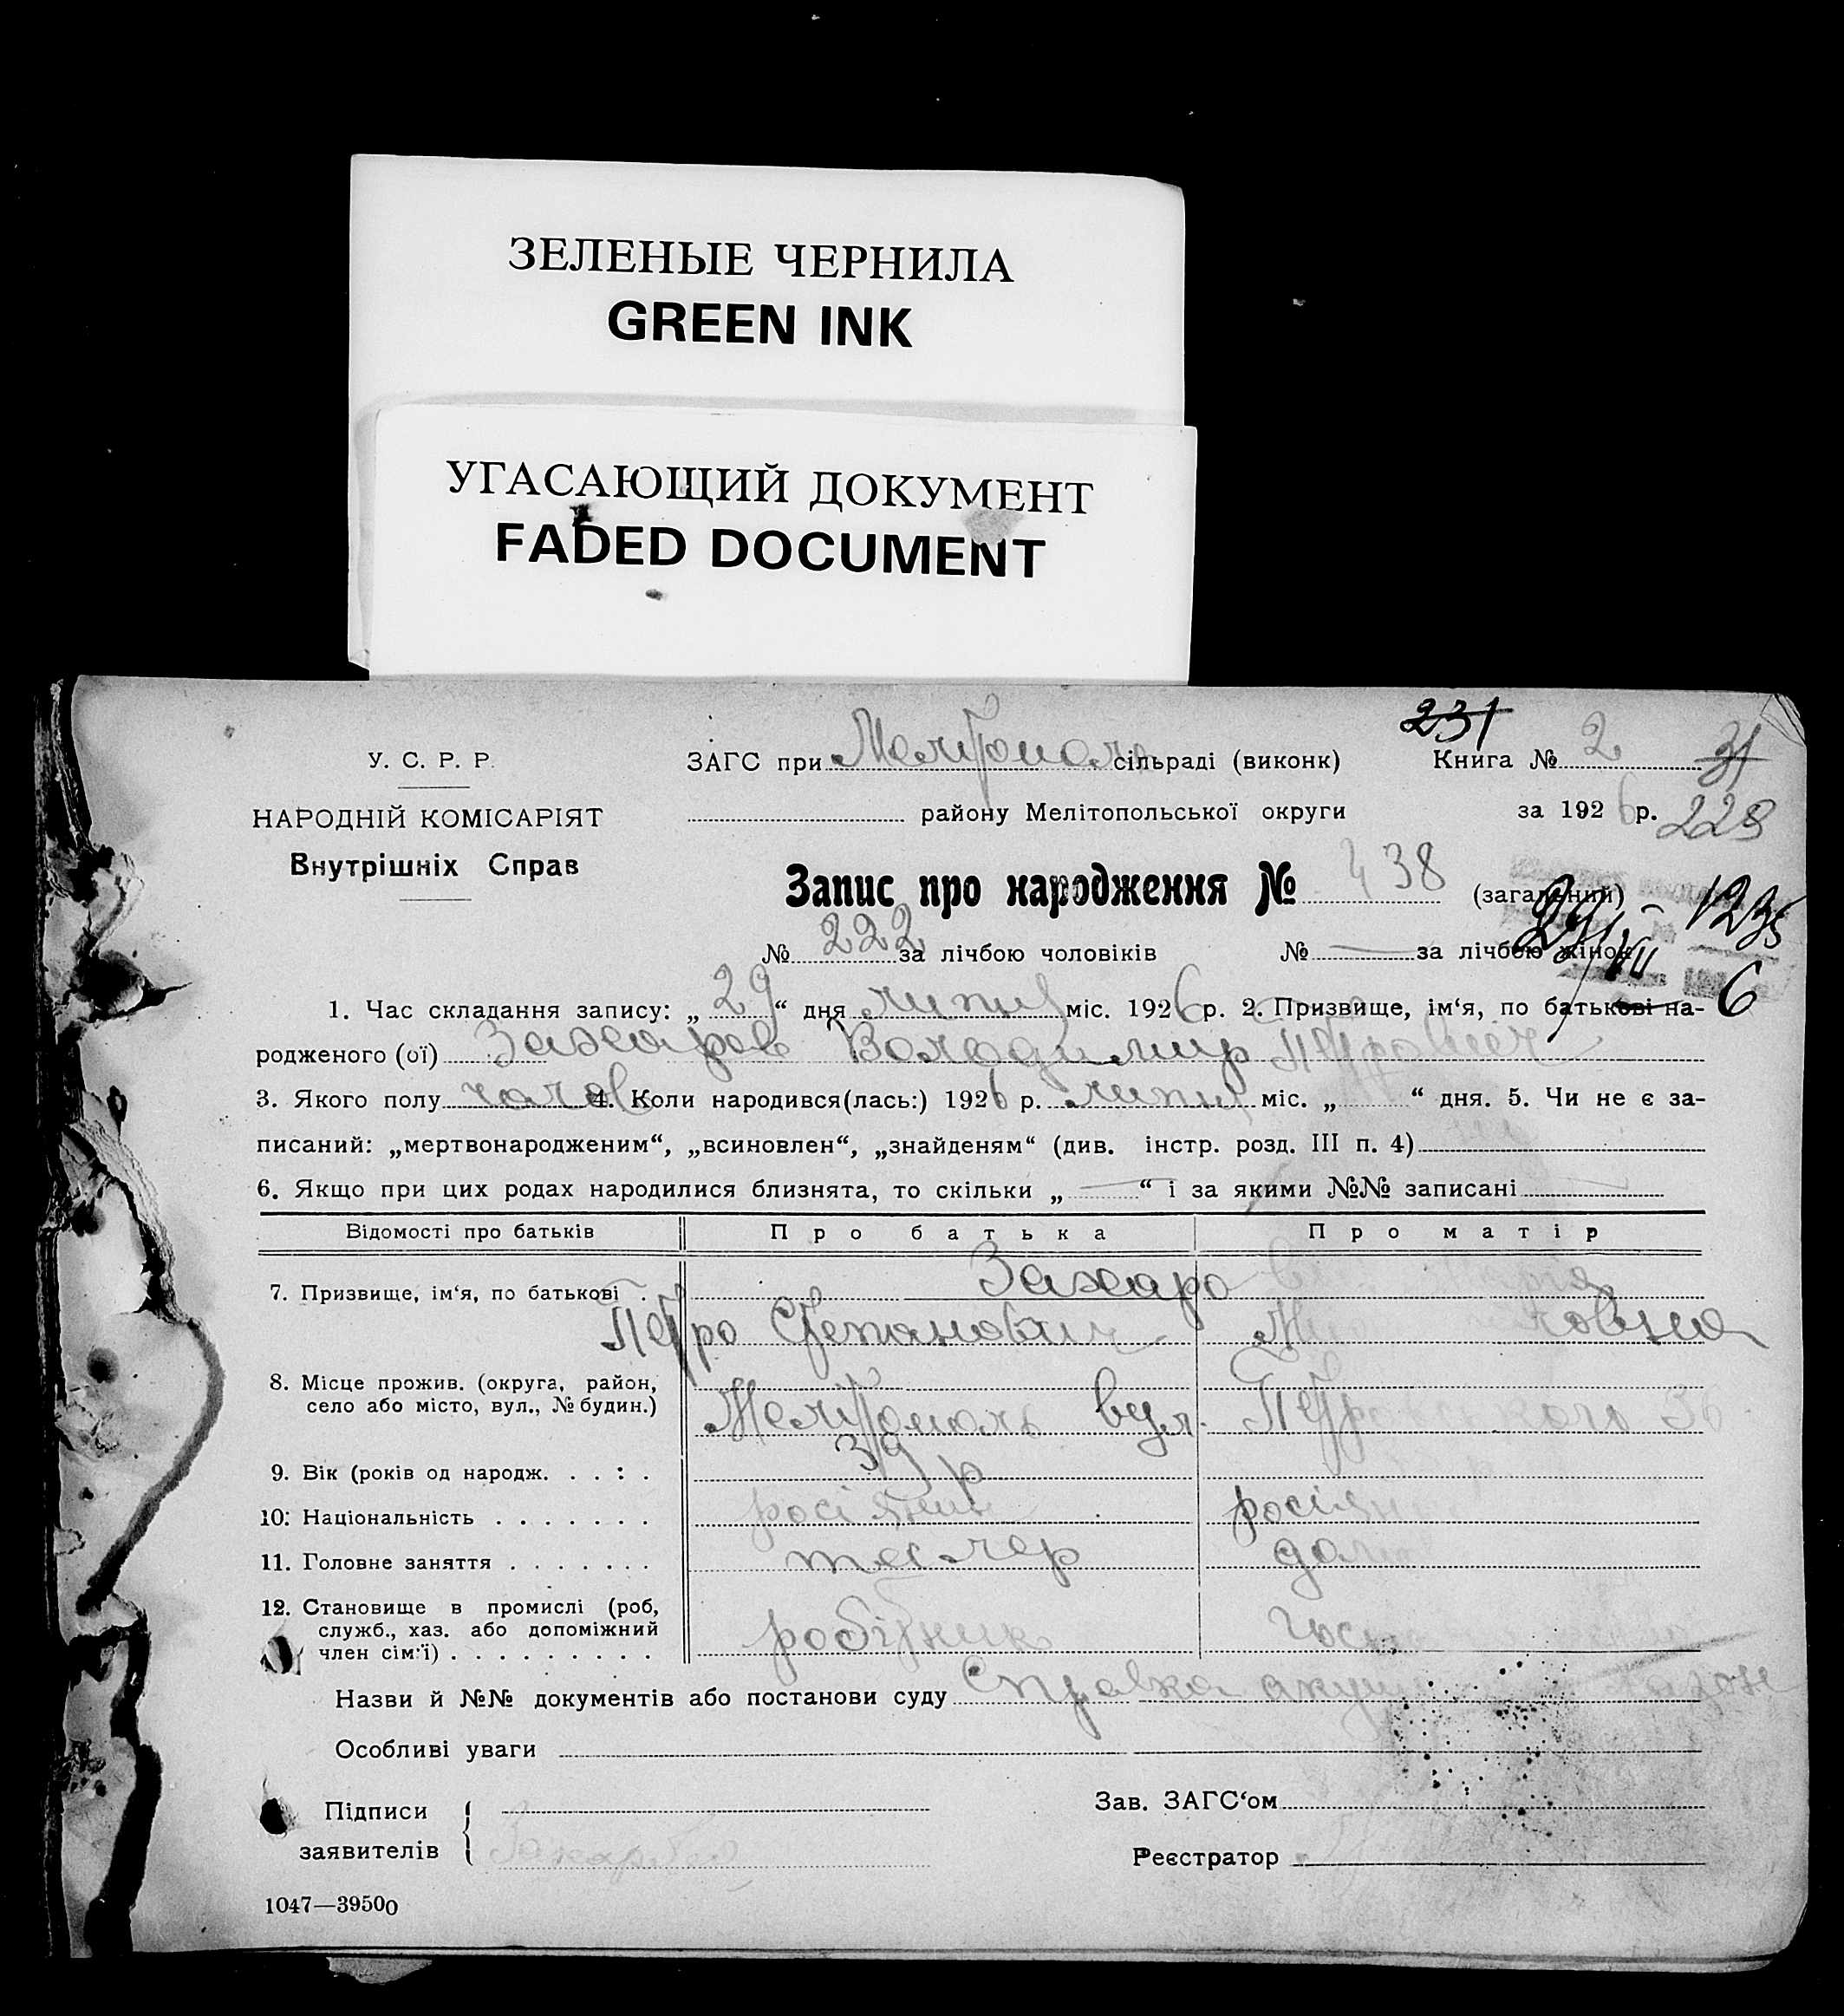 ЗЕЛЕНЫЕ ЧЕРНИЛА
GREEN INK
УГАСАЮЩИЙ ДОКУМЕНТ
FADED DOCUMENT
231
У. С. Р. Р.
ЗАГС при сільраді (виконк) Книга № 2 31
НАРОДНІЙ КОМІСАРІЯТ
району Мелітопольської округи за 1926 р. 228
Внутрішніх Справ
Запис про народження № 438 (загальний)
1235
№ 222 за лічбою чоловіків № — за лічбою жінок
6
1. Час складання запису: „ 29 “ дня липня міс. 1926 р. 2. Призвище, ім‘я, по батькові на-
родженого (ої) Захаров Володимир Петровіч
3. Якого полу чолов 4. Коли народився(лась:) 1926 р. липня міс. „ “ дня. 5. Чи не є за-
писаний: „мертвонародженим“, „всиновлен“, „знайденям“ (див. інстр. розд. III п. 4)
6. Якщо при цих родах народилися близнята, то скільки „ — “ і за якими №№ записані
Відомості про батьків Про батька Про матір
7. Призвище, ім‘я, по батькові . Захаро
Петро Степанович
8. Місце прожив. (округа, район,
село або місто, вул., № будин.) Мелітополь вул.
9. Вік (років од народж. . . : . 39 р
10. Національність . . . . . . . росіянин
11. Головне заняття . . . . . . .
12. Становище в промислі (роб,
служб., хаз. або допоміжний робітник
член сім‘ї) . . . . . . . . .
Назви й №№ документів або постанови суду Справка
Особливі уваги
Підписи
заявителів
Зав. ЗАГС‘ом
Реєстратор
1047—39500